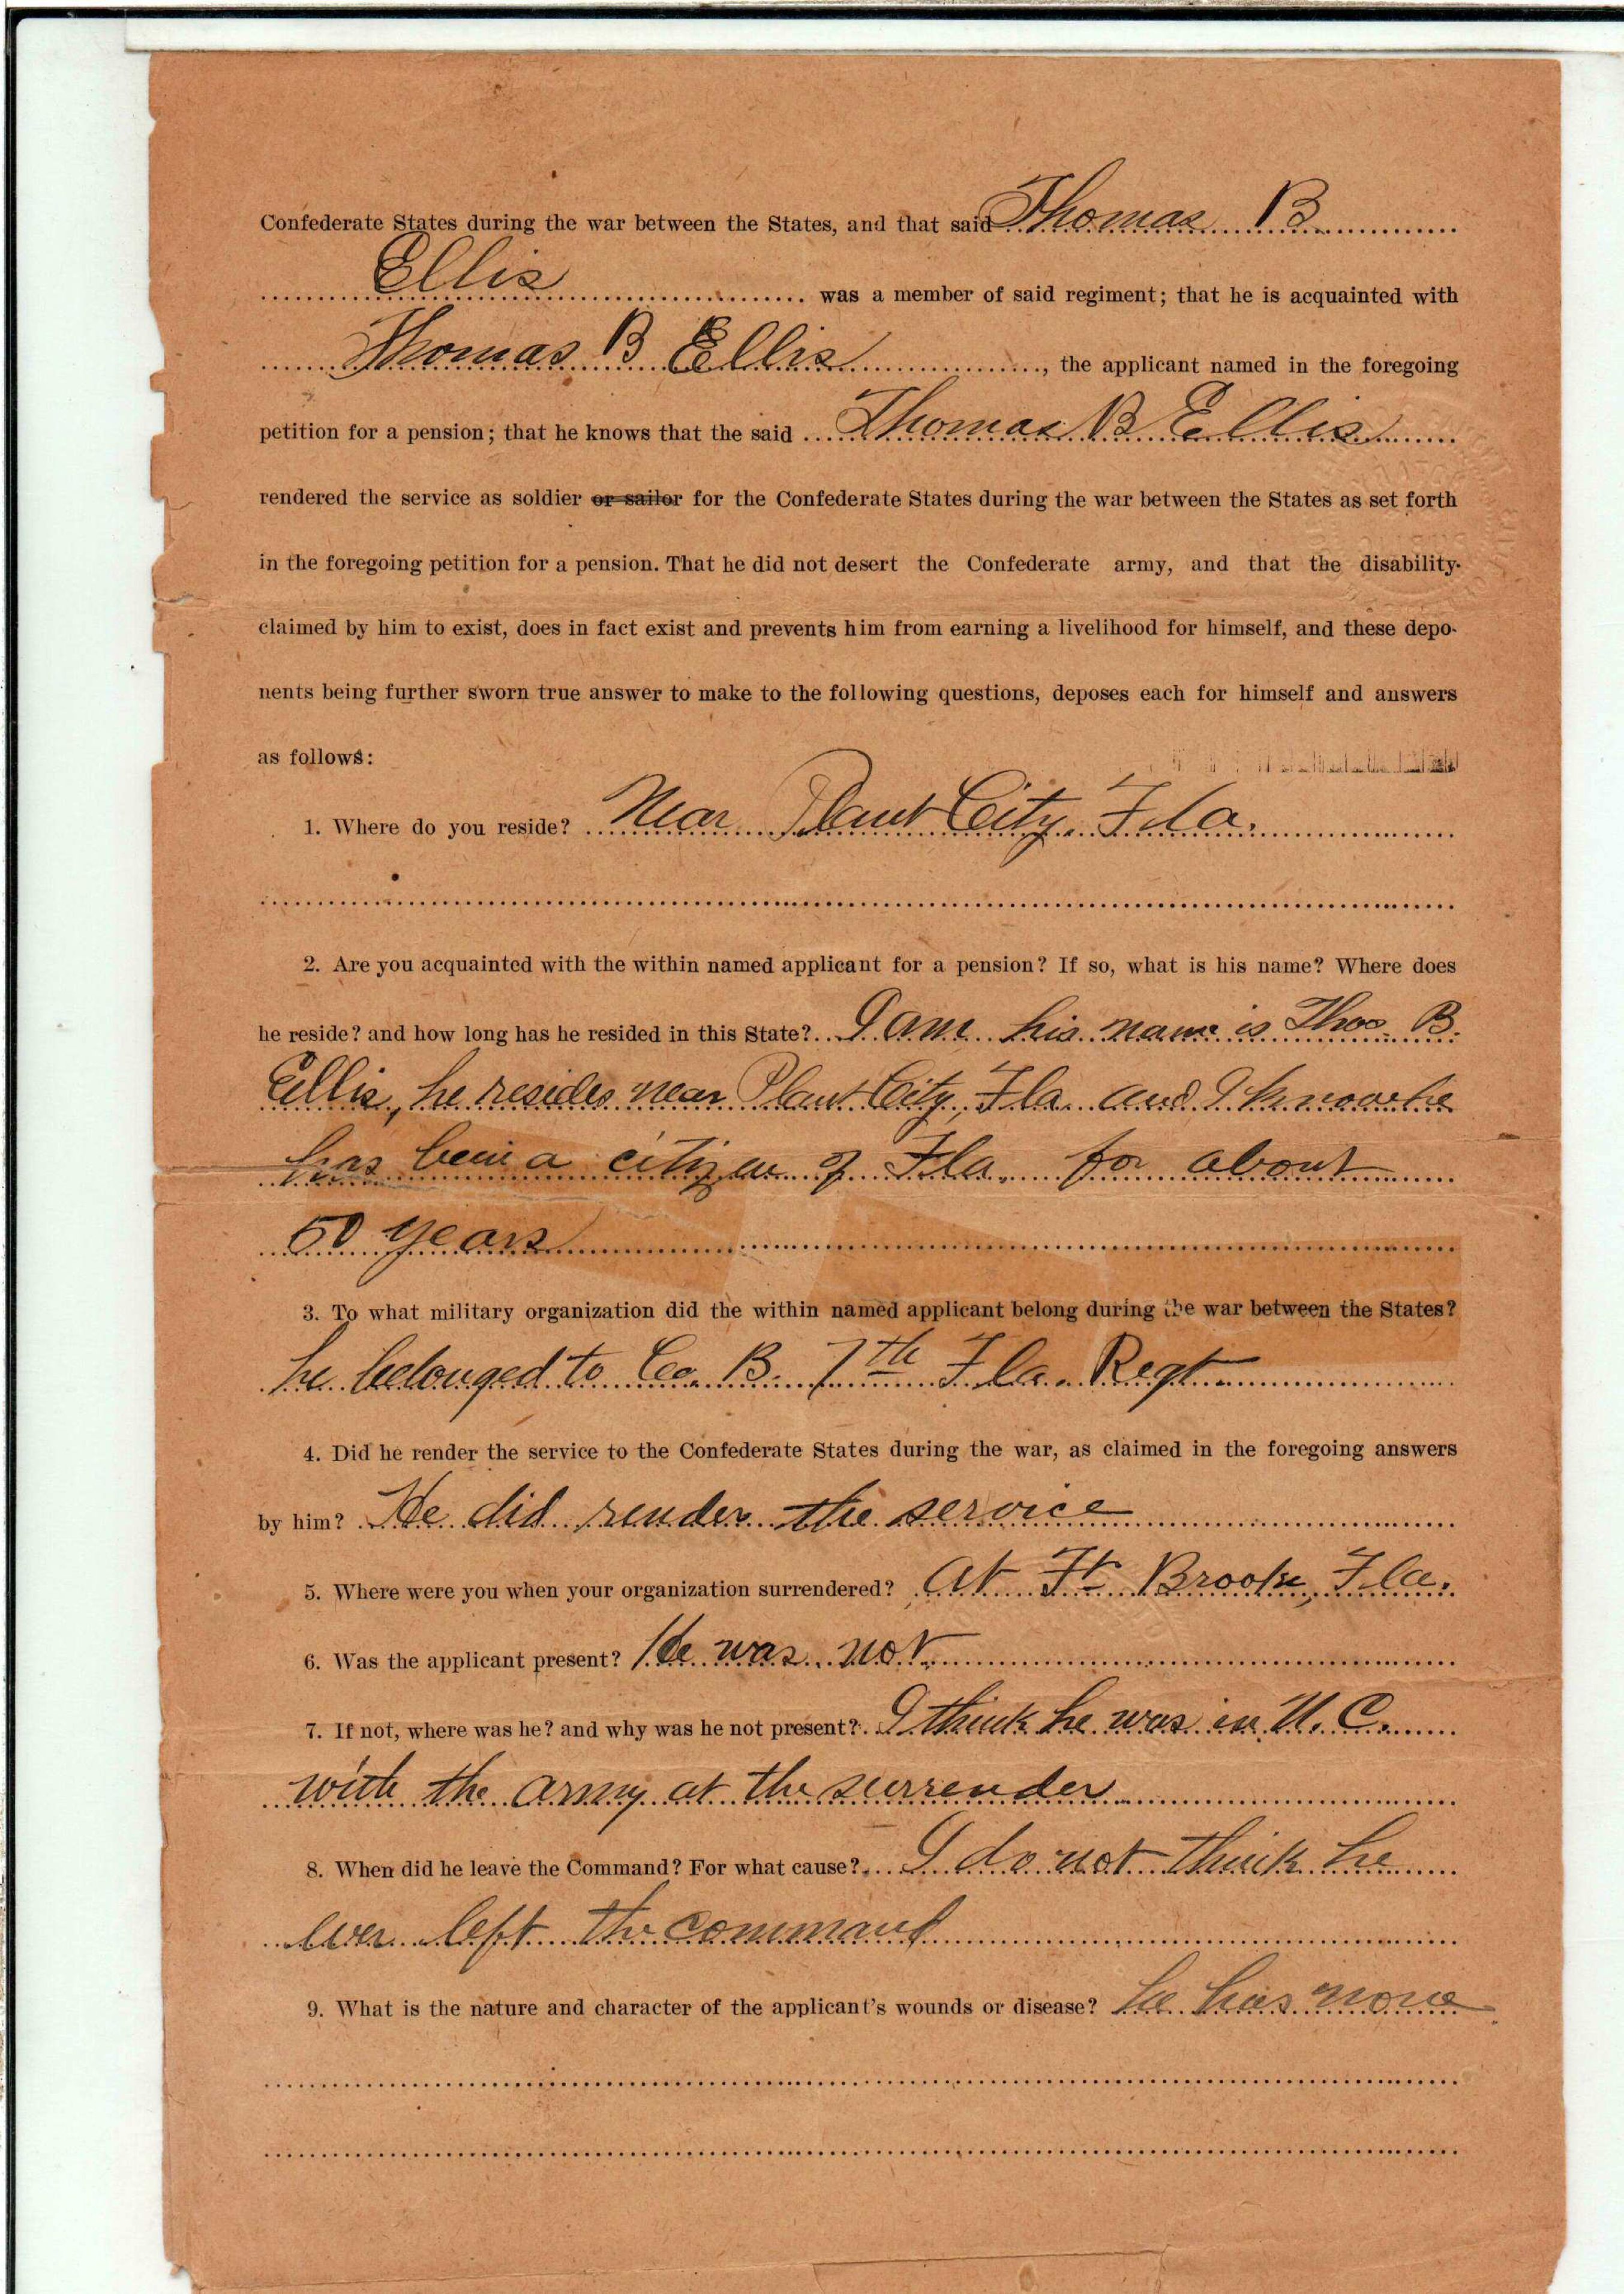 Confederate States during the war between the States, and that said Thomas B.
Ellis was a member of said regiment; that he is acquainted with
Thomas B Ellis, the applicant named in the foregoing
petition for a pension; that he knows that the said Thomas B Ellis
rendered the service as soldier or sailor for the Confederate States during the war between the States as set forth
in the foregoing petition for a pension. That he did not desert the Confederate army, and that the disability
claimed by him to exist, does in fact exist and prevents him from earning a livelihood for himself, and these depo-
nents being further sworn true answer to make to the following questions, deposes each for himself and answers
as follows:
1. Where do you reside? Near Plant City, Fla.
2. Are you acquainted with the within named applicant for a pension? If so, what is his name? Where does
he reside? and how long has he resided in this State? I am his name is Thos. B.
Ellis, he resides near Plant City, Fla. and I know he
has been a citizen of Fla. for about
50 years
3. To what military organization did the within named applicant belong during the war between the States?
he belonged to Co. B. 7th Fla. Regt
4. Did he render the service to the Confederate States during the war, as claimed in the foregoing answers
by him? He did render the service
5. Where were you when your organization surrendered? At Ft Brooke, Fla.
6. Was the applicant present? He was not
7. If not, where was he? and why was he not present? I think he was in N. C.
with the army at the surrender
8. When did he leave the Command? For what cause? I do not think he
ever left the command
9. What is the nature and character of the applicant's wounds or disease? he has none